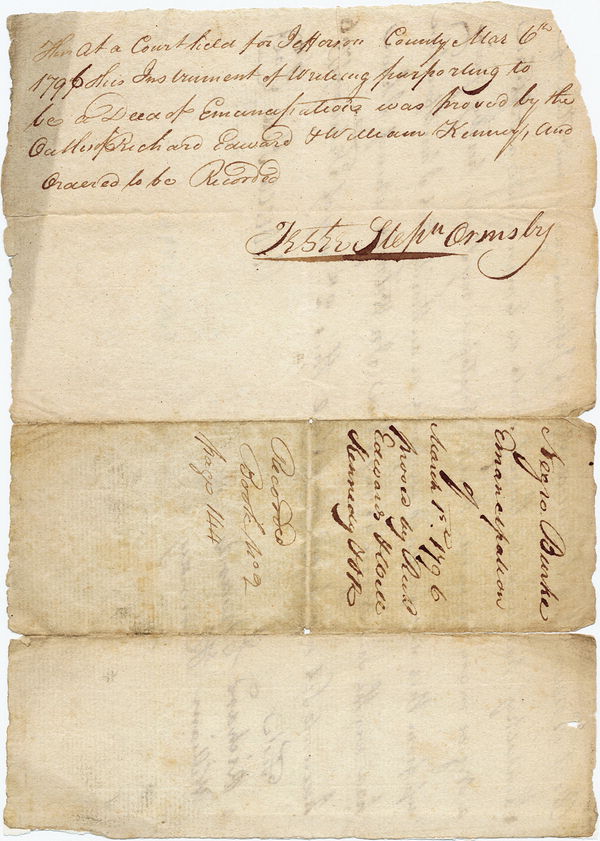 At a Court held for Jefferson County Mar 6th
1796 this Instrument of Writing purporting to
be a Deed of Emancipation was proved by the
Oaths of Richard Edward & William Kennedy, and
Ordered to be Recorded
Teste Stepn Ormsby
Negro Burke
Emancipation
of
March 1st. 1796
Proved by Richd
Edwards & Will
Kennedy & OR
Recorded
Book No 2
page 144